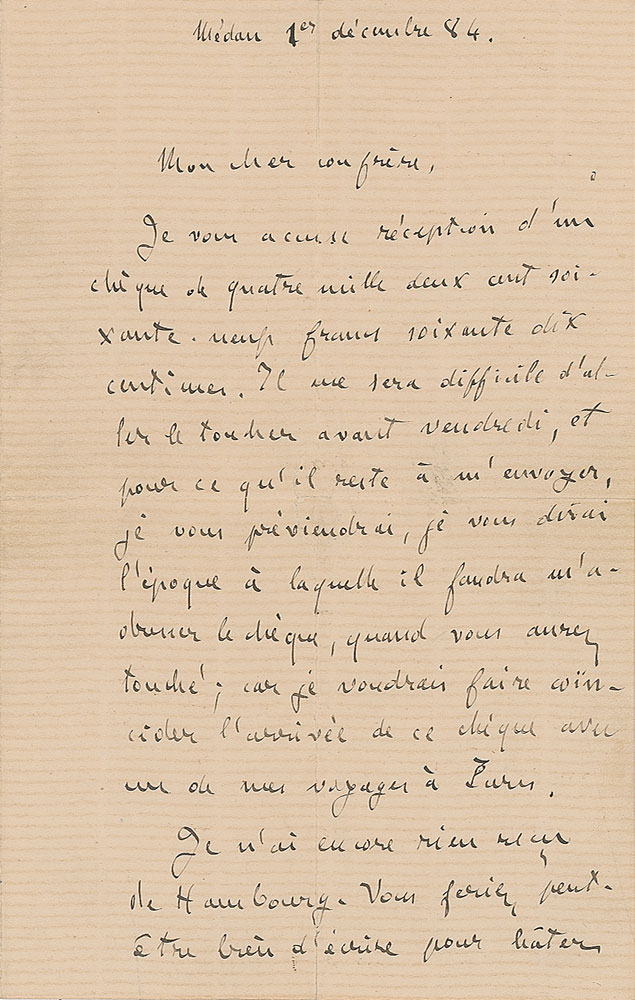 Médan 1er décembre 84.
Mon cher confrère,
Je vous accuse réception d'un
chèque de quatre mille deux cent soi-
xante-neuf francs soixante dix
centimes. Il me sera difficile d'al-
ler le toucher avant vendredi, et
pour ce qu'il reste à m'envoyer,
je vous préviendrai, je vous dirai
l'époque à laquelle il faudra m'a-
dresser le chèque, quand vous aurez
touché ; car je voudrais faire coïn-
cider l'arrivée de ce chèque avec
un de mes voyages à Paris.
Je n'ai encore rien reçu
de Hambourg. Vous feriez peut-
être bien d'écrire pour hâter